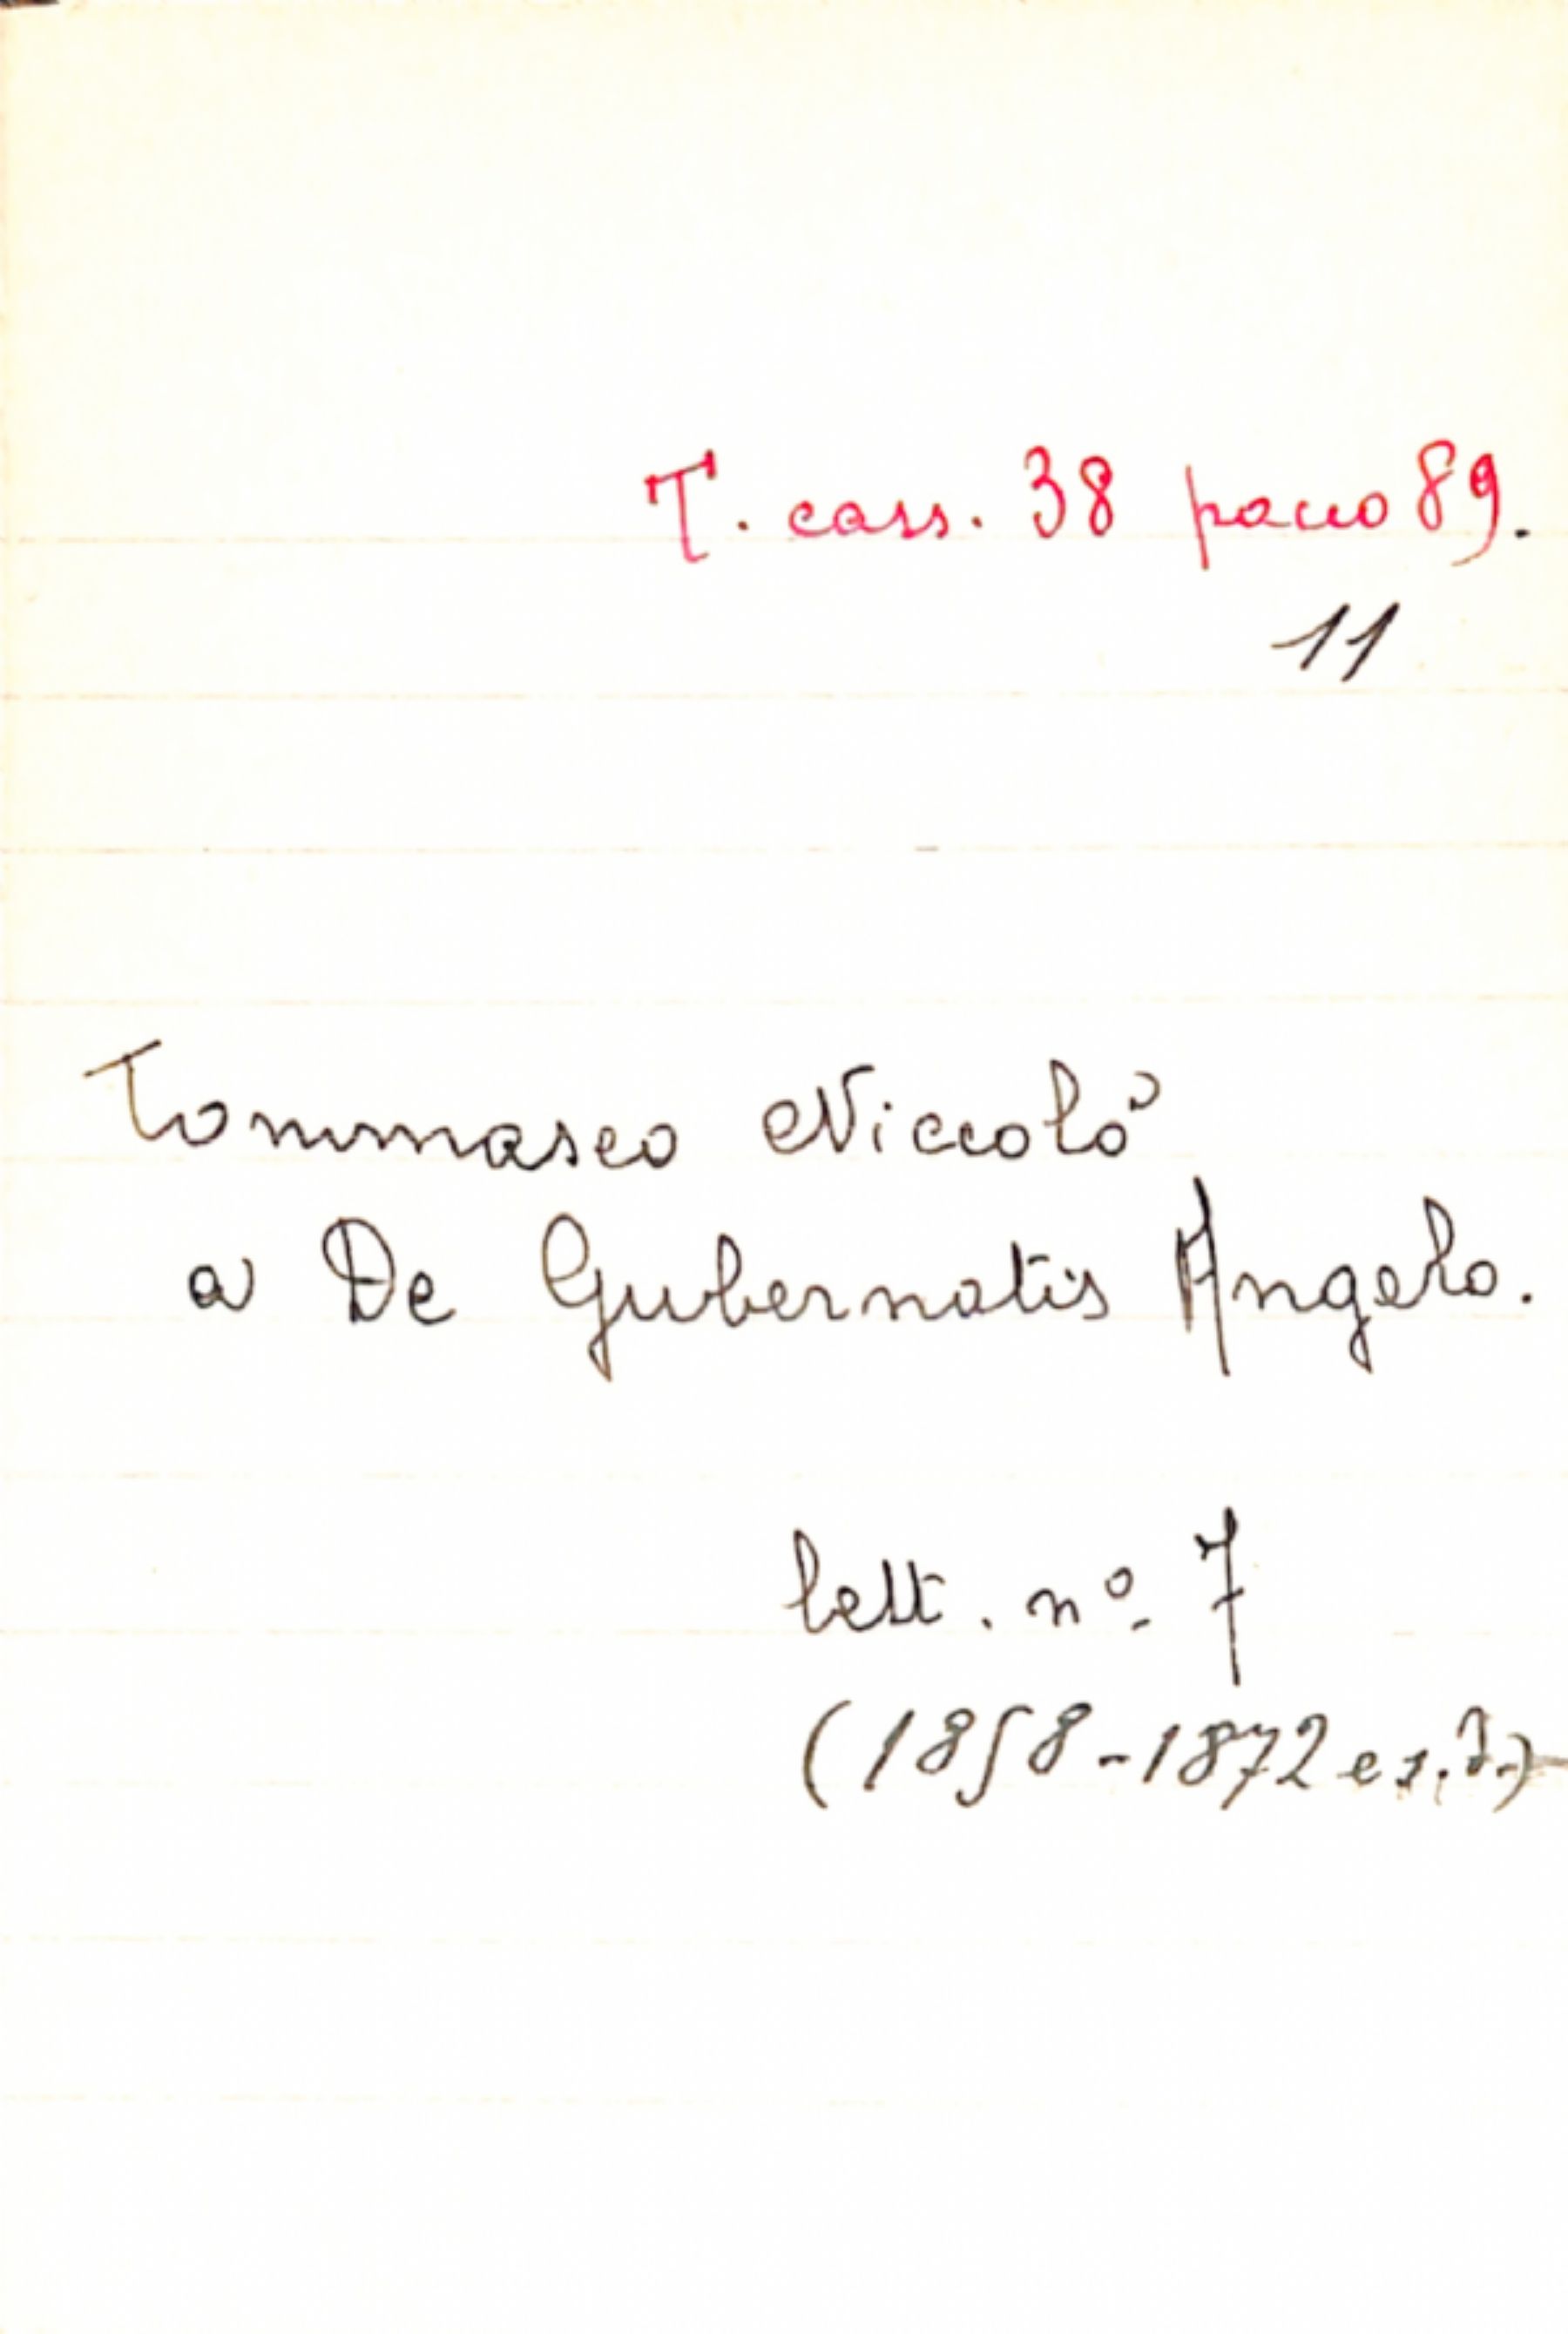 T. cass. 38 pacco 89.
11
Tommaseo Niccolò
a De Gubernatis Angelo.
lett. nº 7
(1858-1872 e s.d.)